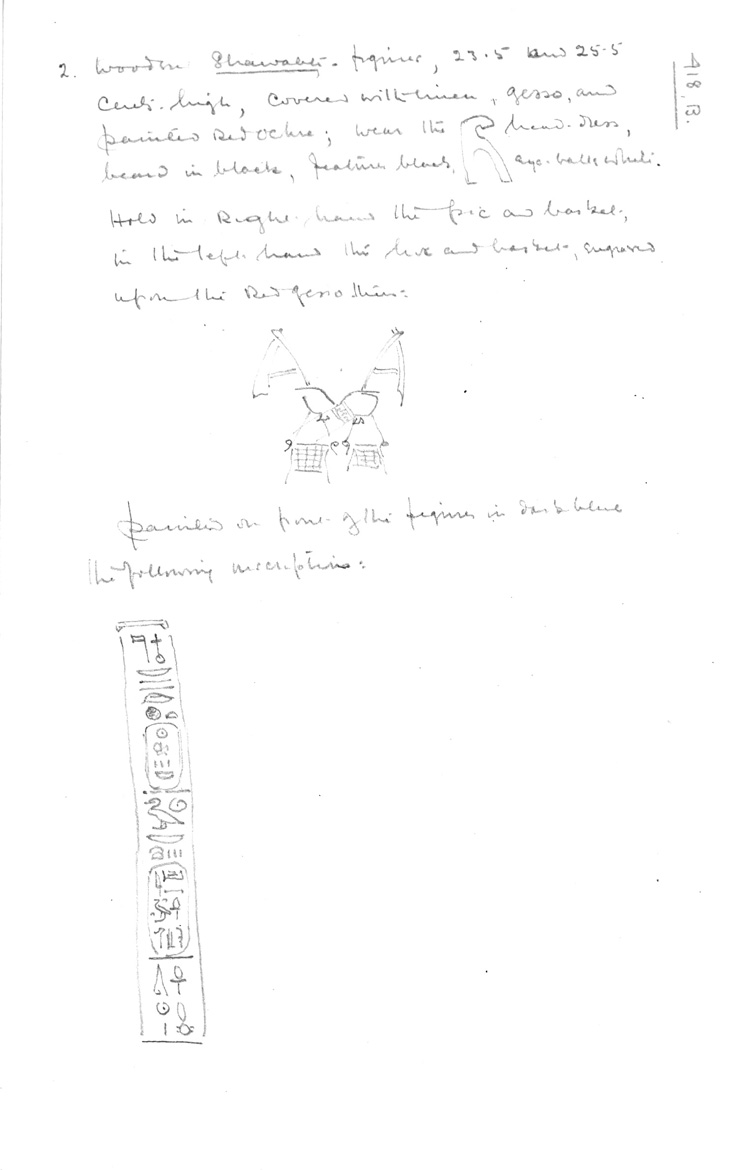 418.B.
2. Wooden Shawabti-figures, 23.5 and 25.5
Cents. high, covered with linen, gesso, and
painted Red Ochre; wear the head-dress,
beard in black, features black, eye-balls white.
Hold in Right hand the pic and basket,
in the left hand the hoe and basket, engraved
upon the Red gesso thus:
Painted on front of the figures in dark blue
the following inscription: